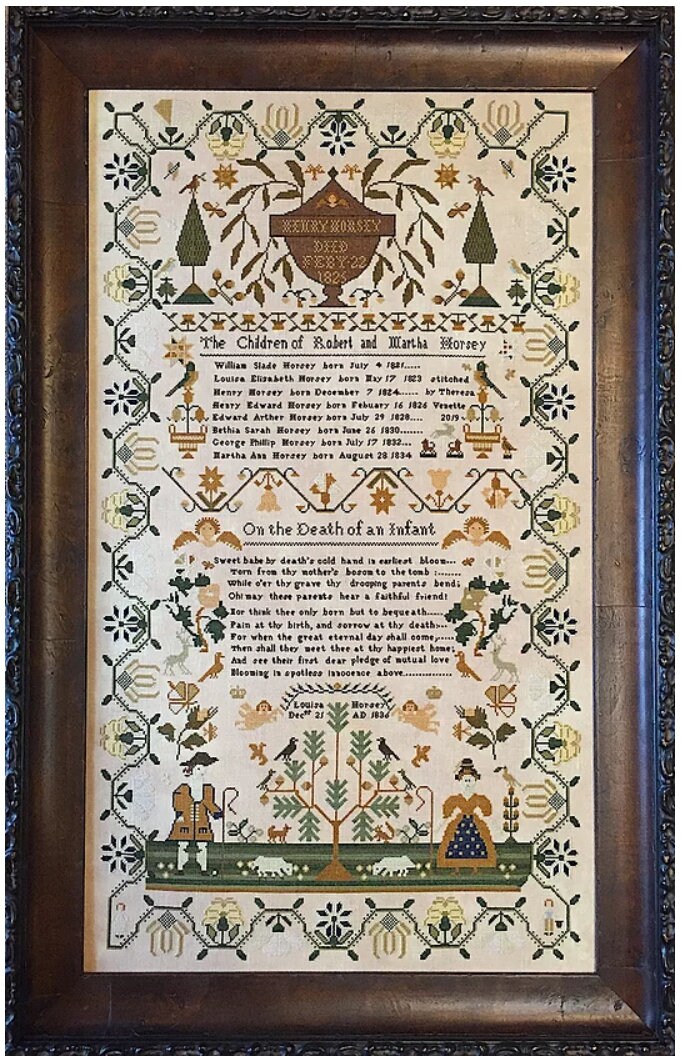 HENRY HORSEY
DIED
FEBY 22
1825
The Children of Robert and Martha Horsey
William Slade Horsey born July 4 1821.....
Louisa Elizabeth Horsey born May 17 1823 stitched
Henry Horsey born December 7 1824...... by Theresa
Henry Edward Horsey born Febuary 16 1826 Venette
Edward Arther Horsey born July 29 1828.... 2019
Bethia Sarah Horsey born June 26 1830.......
George Phillip Horsey born July 17 1832...
Martha Ann Horsey born August 28 1834
On the Death of an Infant
Sweet babe by death's cold hand in earliest bloom...
Torn from thy mother's bosom to the tomb :.......
While o'er thy grave thy drooping parents bend;
Oh! may these parents hear a faithful friend!
Nor think thee only born but to bequeath.....
Pain at thy birth, and sorrow at thy death:..
For when the great eternal day shall come,.....
Then shall they meet thee at thy happiest home;
And see their first dear pledge of mutual love
Blooming in spotless innocence above..............
Louisa Horsey
Decbr 21 AD 1836